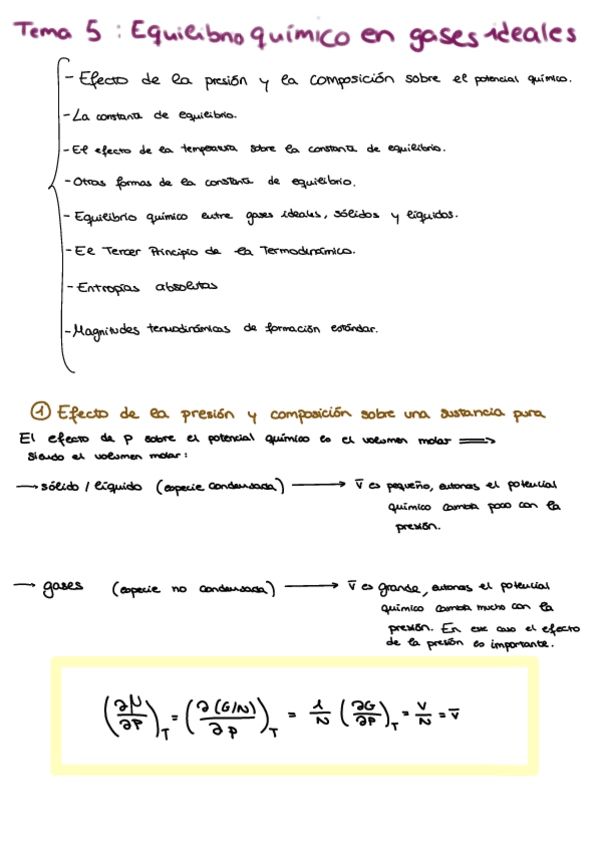 Tema 5 : Equilibrio químico en gases ideales
- Efecto de la presión y la composición sobre el potencial químico.
- La constante de equilibrio.
- El efecto de la temperatura sobre la constante de equilibrio.
- Otras formas de la constante de equilibrio.
- Equilibrio químico entre gases ideales, sólidos y líquidos.
- El Tercer Principio de la Termodinámica.
- Entropías absolutas
- Magnitudes termodinámicas de formación estándar.
① Efecto de la presión y composición sobre una sustancia pura
El efecto de P sobre el potencial químico es el volumen molar ⟹
Siendo el volumen molar:
→ sólido / líquido (especie condensada) → V̅ es pequeño, entonces el potencial
químico cambia poco con la
presión.
→ gases (especie no condensada) → V̅ es grande, entonces el potencial
químico cambia mucho con la
presión. En ese caso el efecto
de la presión es importante.
(∂μ/∂P)_T = (∂(G/N)/∂P)_T = 1/N (∂G/∂P)_T = V/N = V̅